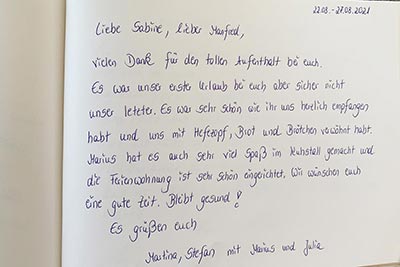 22.08. - 27.08.2021
Liebe Sabine, lieber Manfred,
vielen Dank für den tollen Aufenthalt bei euch.
Es war unser erster Urlaub bei euch aber sicher nicht
unser letzter. Es war sehr schön wie ihr uns herzlich empfangen
habt und uns mit Hefezopf, Brot und Brötchen verwöhnt habt.
Marius hat es auch sehr viel Spaß im Kuhstall gemacht und
die Ferienwohnung ist sehr schön eingerichtet. Wir wünschen euch
eine gute Zeit. Bleibt gesund!
Es grüßen euch
Martina, Stefan mit Marius und Julia